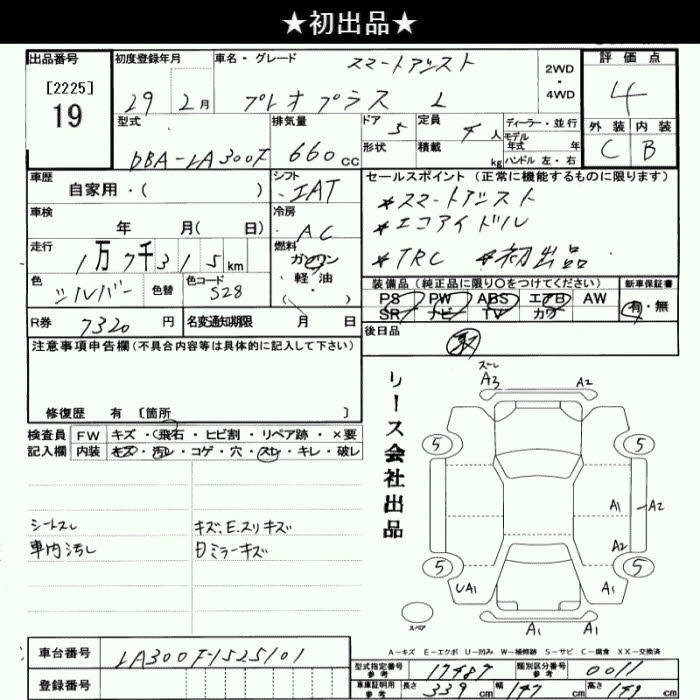 ★初出品★
出品番号
[2225]
19
初度登録年月
29 2月
車名・グレード
スマートアシスト
プレオプラス L
2WD
・
4WD
評価点
4
外装 内装
C B
型式
DBA-LA300F
排気量
660cc
ドア 5
形状
定員 4人
積載 kg
ディーラー・並行
モデル
年式 年
ハンドル 左・右
車歴
自家用・( )
シフト
IAT
セールスポイント (正常に機能するものに限ります)
*スマートアシスト
*エコアイドル
*TRC *初出品
車検
年 月( 日)
冷房
AC
走行
1万7千315km
燃料
ガソリン
軽油・
( )
色
シルバー
色替
色コード
S28
装備品 (純正品に限り○をつけてください)
PS PW ABS エアB AW
SR ナビ TV カワ
新車保証書
有・無
R券 7320円
名変通知期限 月 日
後日品
注意事項申告欄(不具合内容等は具体的に記入して下さい)
修復歴 有 [箇所 ]
検査員
記入欄
FW キズ・飛石・ヒビ割・リペア跡・×要
内装 キズ・汚レ・コゲ・穴・スレ・キレ・破レ
シートスレ
車内汚レ
キズ、E、スリキズ
ミラーキズ
リース会社出品
スレ
A3 A2
5 5
A1 A2
A2
5 5
UA1 A1
A1 A1
スペア
A-キズ E-エクボ U-凹み W-補修跡 S-サビ C-腐食 XX-交換済
車台番号
LA300F-1525101
登録番号
型式指定番号
参考
17487
類別区分番号
参考
0011
車庫証明用
参考
長さ 339cm 幅 147cm 高さ 149cm